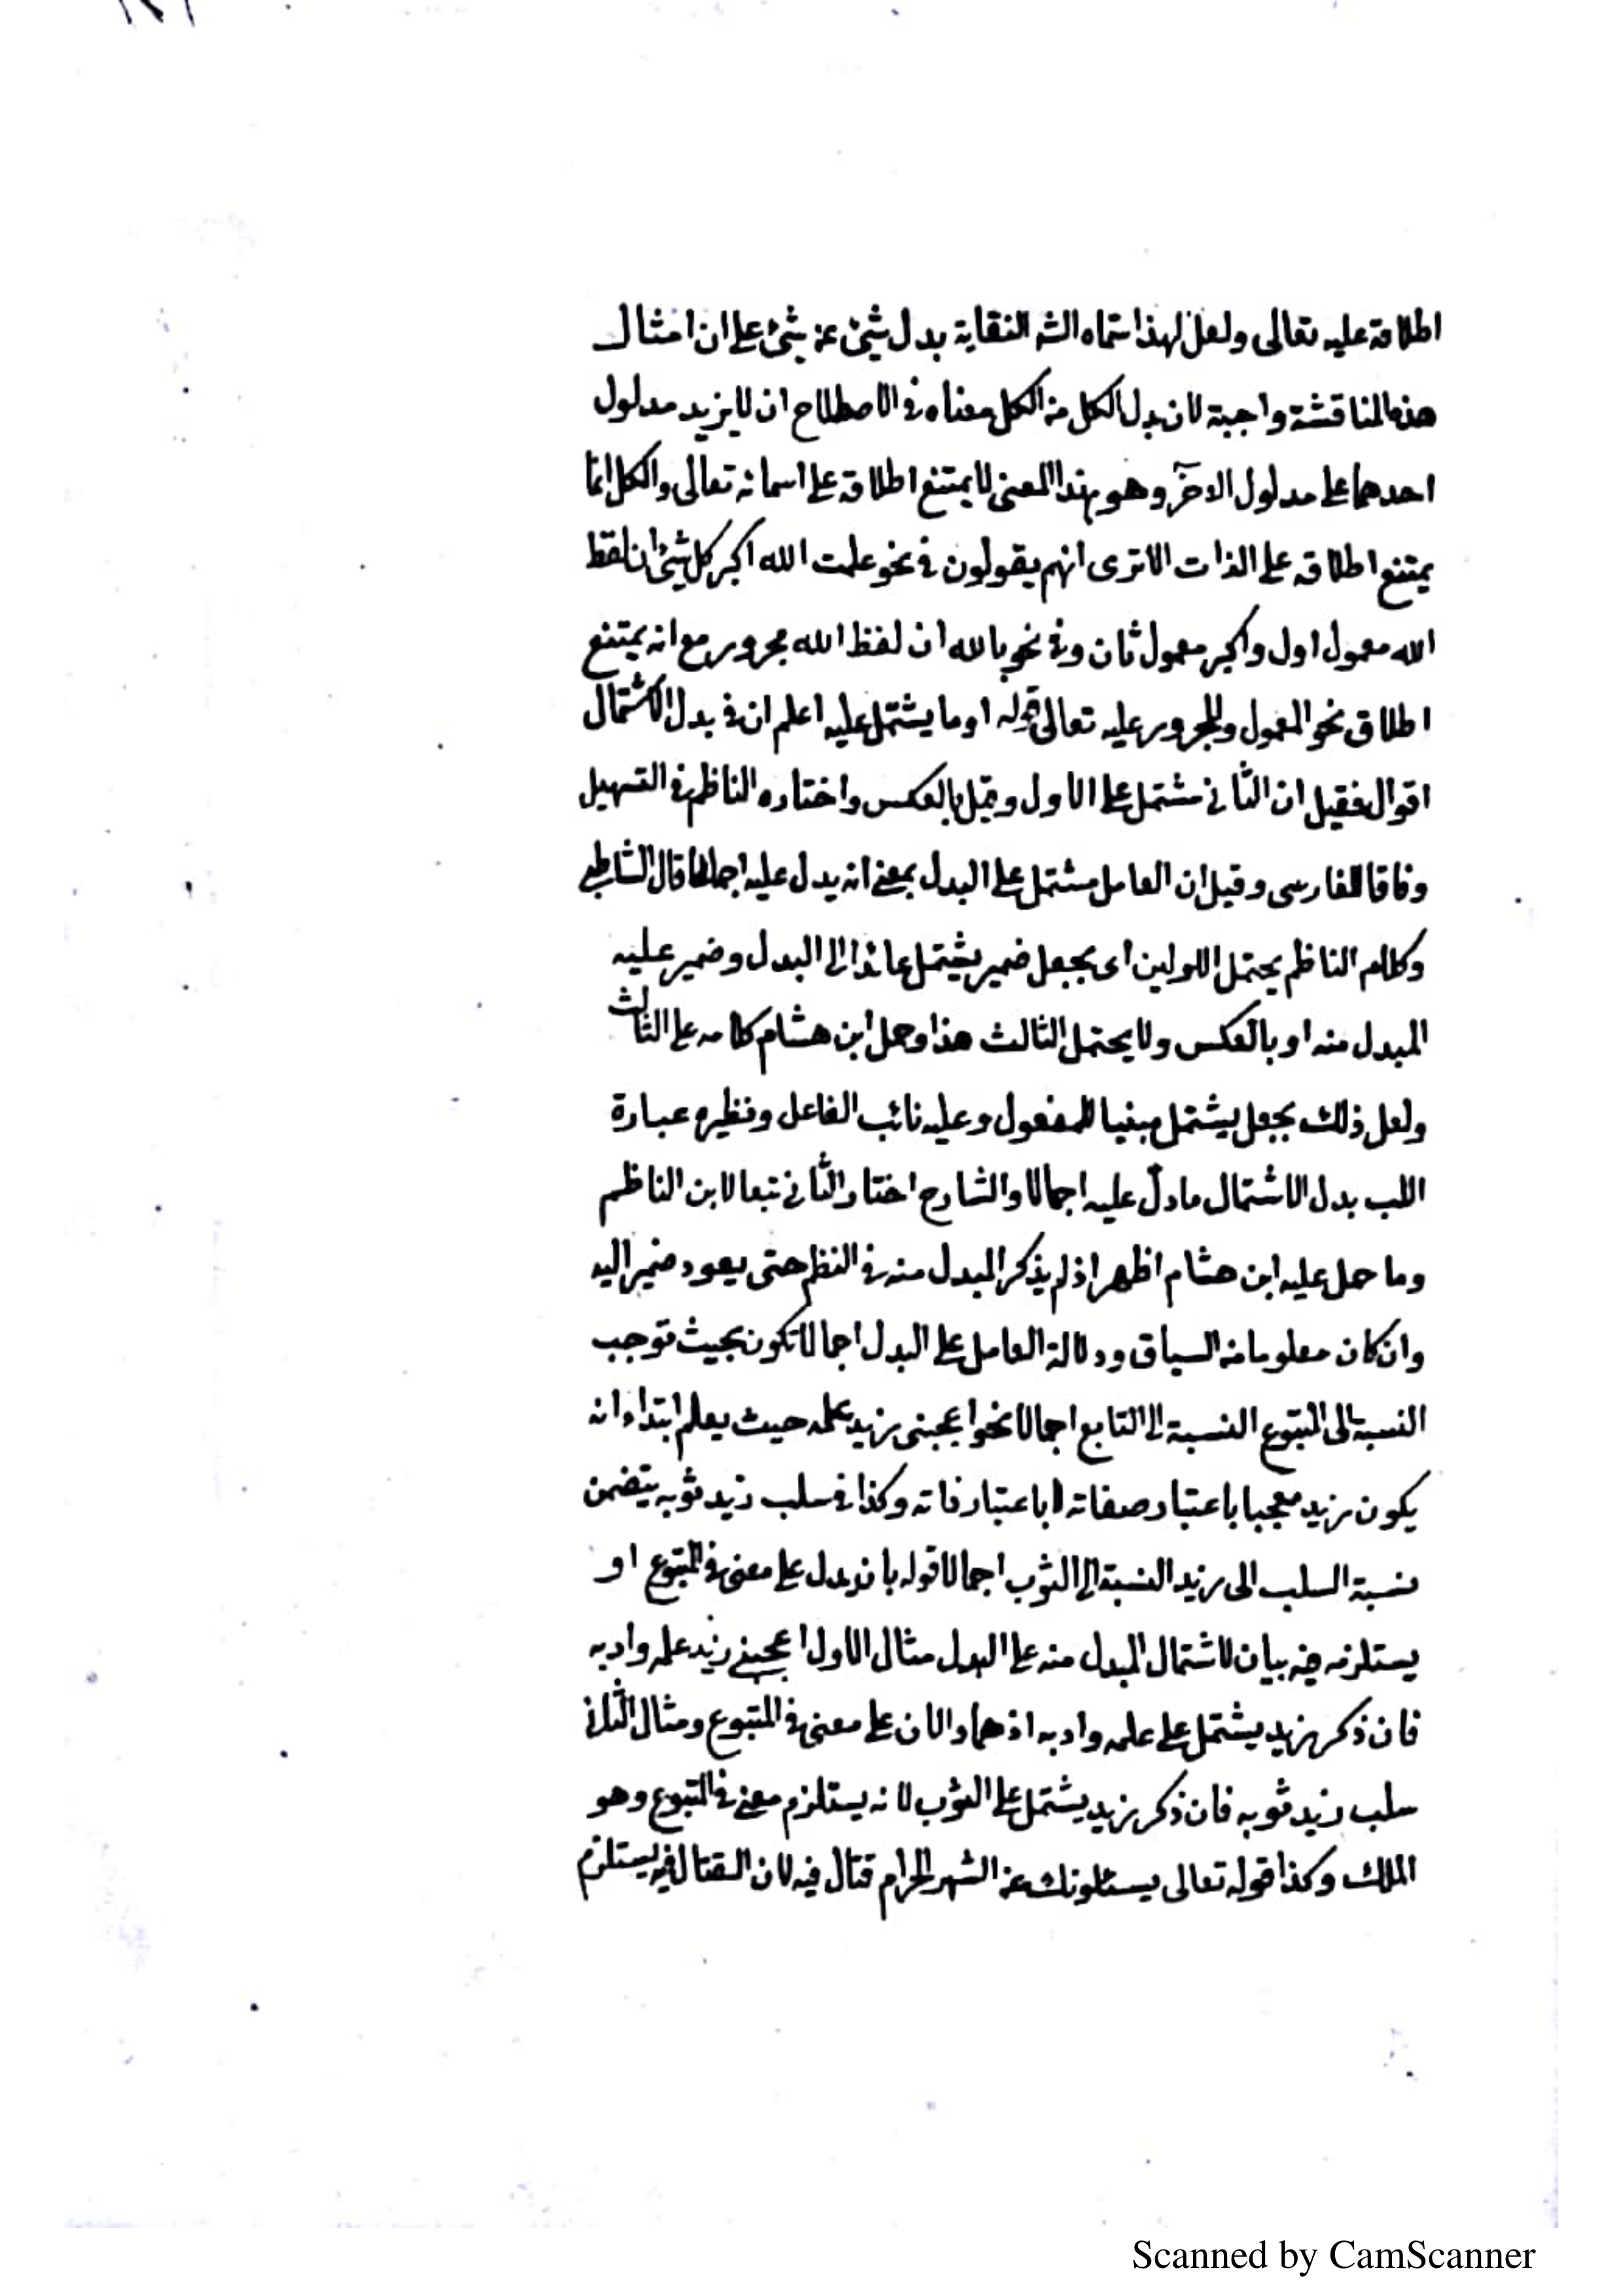 اطلاقه عليه تعالى ولعل لهذا سماه الشه النقاية بدل شئ عن شئ على ان امثال
هذه المناقشة واجبة لان بدل الكل من الكل معناه في الاصطلاح ان لا يزيد مدلول
احدهما على مدلول الاخر وهو بهذا المعنى لا يمتنع اطلاقه على اسمائه تعالى والكل انما
يمتنع اطلاقه على الذات الا ترى انهم يقولون في نحو علمت الله اكبر كل شئ ان لفظ
الله معمول اول واكبر معمول ثان وفي نحو بالله ان لفظ الله مجرور مع انه يمتنع
اطلاق نحو المعمول والمجرور عليه تعالى قوله او ما يشتمل عليه اعلم ان في بدل الاشتمال
اقوال فقيل ان الثاني مشتمل على الاول وقيل بالعكس واختاره الناظم في التسهيل
وفاقا للفارسى وقيل ان العامل مشتمل على البدل بمعنى انه يدل عليه اجمالا قال الشاطبي
وكلام الناظم يحتمل الاولين اى بجعل ضمير يشتمل عائدا الى البدل وضمير عليه
المبدل منه او بالعكس ولا يحتمل الثالث هذا وحمل ابن هشام كلامه على الثالث
ولعل ذلك بجعل يشتمل مبنيا للمفعول وعليه نائب الفاعل ونظيره عبارة
اللب بدل الاشتمال ما دلّ عليه اجمالا والشارح اختار الثاني تبعا لابن الناظم
وما حمل عليه ابن هشام اظهر اذ لم يذكر المبدل منه في النظم حتى يعود ضمير اليه
وان كان معلوما من السياق ودلالة العامل على البدل اجمالا تكون بحيث توجب
النسبة الى المتبوع النسبة الى التابع اجمالا نحو اعجبنى زيد علمه حيث يعلم ابتداء انه
يكون زيد معجبا باعتبار صفاته لا باعتبار ذاته وكذا في سلب زيد ثوبه يتضمن
نسبة السلب الى زيد النسبة الى الثوب اجمالا قوله بان يدل على معنى في المتبوع او
يستلزمه فيه بيان لاشتمال المبدل منه على البدل مثال الاول اعجبني زيد علمه وادبه
فان ذكر زيد يشتمل على علمه وادبه اذ هما دالان على معنى في المتبوع ومثال الثاني
سلب زيد ثوبه فان ذكر زيد يشتمل على الثوب لانه يستلزم معنى في المتبوع وهو
الملك وكذا قوله تعالى يسئلونك عن الشهر الحرام قتال فيه لان القتال فيه يستلزم
Scanned by CamScanner